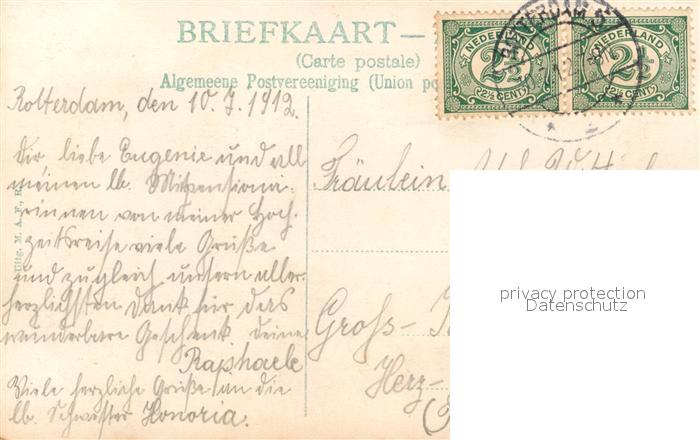 BRIEFKAART—
(Carte postale)
Algemeene Postvereeniging (Union po
NEDERLAND
2½
(2½ CENT)
NEDERLAND
2½
(2½ CENT)
Rotterdam, den 10. 7. 1912.
Dir liebe Eugenie und all
meinen lb. Mitpensionä-
rinnen von meiner Hoch-
zeitsreise viele Grüße
und zugleich unsern aller-
herzlichsten Dank für das
wunderbare Geschenk. Deine
Raphaele
Viele herzliche Grüße an die
lb. Schwester Honoria.
Uitg. M. A. F., R
Fräulein
Gross-
Herz-
privacy protection
Datenschutz